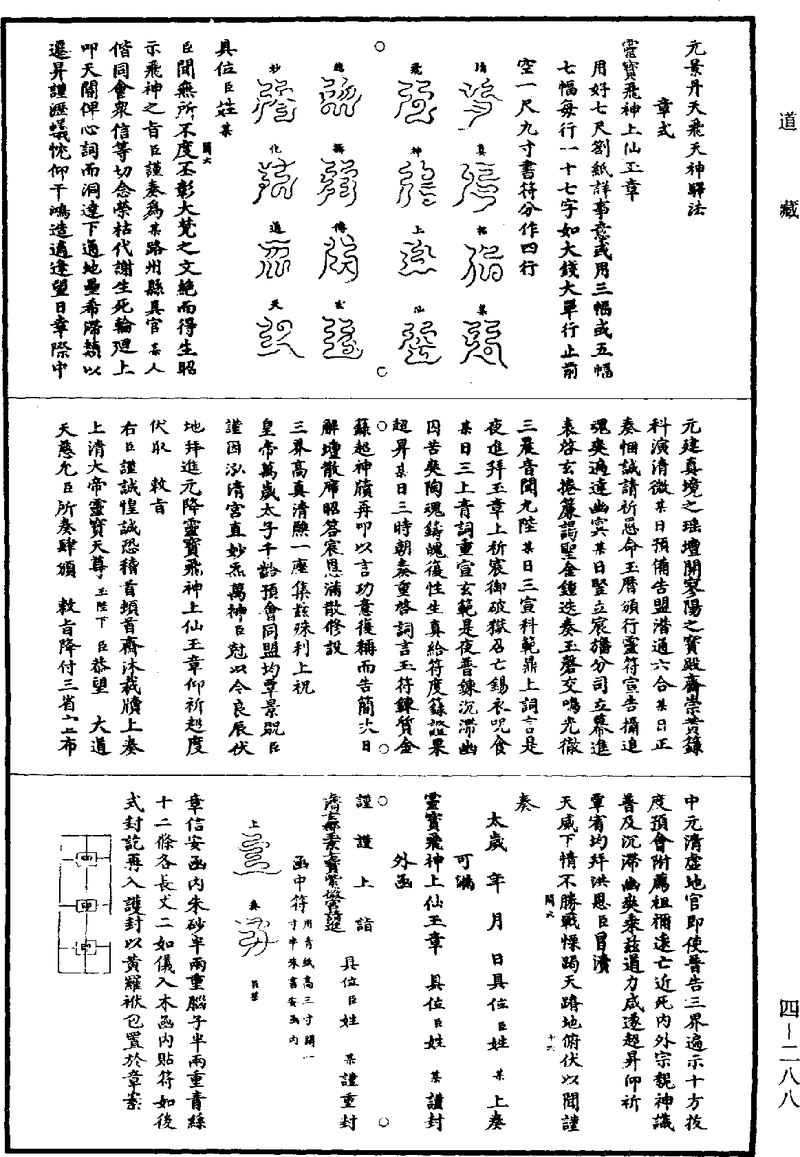 道藏
元景丹天飛天神驛法
章式
靈寶飛神上仙玉章
用好七尺劄紙詳事意或用三幅或五幅
七幅每行一十七字如大錢大單行止前
空一尺九寸書符分作四行
清 真 招 業
飛 神 上 仙
總 稱 傳 玄
妙 化 道 天
具位臣姓某
臣聞無所不度丕彰大梵之文絶而得生昭
示飛神之旨臣謹奏為某路州縣具官某人
偕同會衆信等切念榮枯代謝生死輪迴上
叩天關俾心詞而洞達下通地壘希滯類以
遷昇謹瀝蟻忱仰干鴻造適逢望日幸際中
元建真境之瑶壇開寥陽之寶殿齋崇黃籙
科演清微某日預備告盟潛通六合某日正
奏悃誠請祈恩命玉曆頒行靈符宣告攝追
魂爽遍達幽冥某日豎立宸旛分司立幕進
表啓玄捲簾謁聖金鐘迭奏玉磬交鳴光徹
三晨音聞九陛某日三宣科範鼎上詞言是
夜進拜玉章上祈宸御破獄召亡錫衣呪食
某日三上青詞重宣玄範是夜普鍊沉滯幽
囚苦爽陶魂鑄魄復性生真給符度籙證果
超昇某日三時朝奏重啓詞言玉符鍊質金
籙起神牘再叩以言功意復稱而告簡六日
解壇散席昭答宸恩滿散修設
三界高真清醮一座集兹殊利上祝
皇帝萬歲太子千齡預會同盟均覃景貺臣
謹因泓清宮直妙炁萬神臣尅以今良辰伏
地拜進元降靈寶飛神上仙玉章仰祈超度
伏取 敕旨
右臣謹誠惶誠恐稽首頓首齋沐裁牘上奏
上清大帝靈寶天尊玉陛下 臣恭望 大道
天慈允臣所奏肆頒 敕旨降付三省六上布
中元清虛地官即使普告三界遍示十方拔
度預會附薦祖禰遠亡近死内外宗親神識
普及沉滯幽爽乘兹道力咸遂超昇仰祈
覃宥均拜洪恩臣冒瀆
天威下情不勝戰慄跼天蹐地俯伏以聞謹
奏
太歲 年 月 日具位臣姓 某 上奏
可漏
靈寶飛神上仙玉章 具位臣姓 某 謹封
外函
謹 謹 上 詣 具位臣姓 某 謹重封
函中符 用青紙高三寸闊一寸半朱書安函内
上 奏
章信安函内朱砂半兩重腦子半兩重青絲
十二條各長丈二如儀入木函内貼符如後
式封訖再入護封以黃羅袱包置於章案
四—二八八